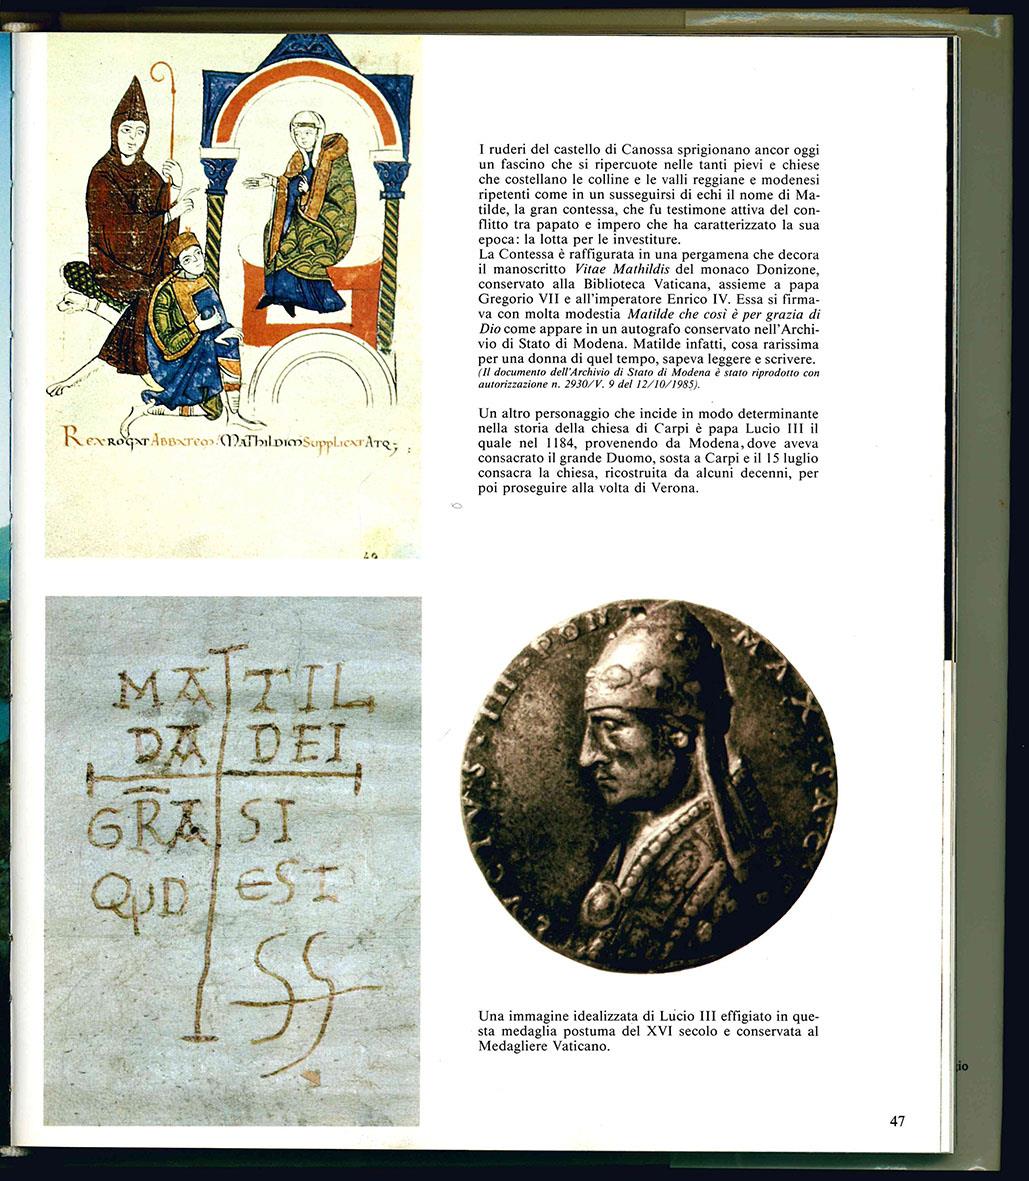 I ruderi del castello di Canossa sprigionano ancor oggi
un fascino che si ripercuote nelle tanti pievi e chiese
che costellano le colline e le valli reggiane e modenesi
ripetenti come in un susseguirsi di echi il nome di Ma-
tilde, la gran contessa, che fu testimone attiva del con-
flitto tra papato e impero che ha caratterizzato la sua
epoca: la lotta per le investiture.
La Contessa è raffigurata in una pergamena che decora
il manoscritto Vitae Mathildis del monaco Donizone,
conservato alla Biblioteca Vaticana, assieme a papa
Gregorio VII e all'imperatore Enrico IV. Essa si firma-
va con molta modestia Matilde che così è per grazia di
Dio come appare in un autografo conservato nell'Archi-
vio di Stato di Modena. Matilde infatti, cosa rarissima
per una donna di quel tempo, sapeva leggere e scrivere.
(Il documento dell'Archivio di Stato di Modena è stato riprodotto con
autorizzazione n. 2930/V. 9 del 12/10/1985).
Un altro personaggio che incide in modo determinante
nella storia della chiesa di Carpi è papa Lucio III il
quale nel 1184, provenendo da Modena, dove aveva
consacrato il grande Duomo, sosta a Carpi e il 15 luglio
consacra la chiesa, ricostruita da alcuni decenni, per
poi proseguire alla volta di Verona.
REX ROGAT ABBATEM MATHILDIM SUPPLICAT ATQ;
49
MA TIL
DA DEI
GRA SI
QUD EST
SS
LUCIUS · III · PONT MAX · SAC
Una immagine idealizzata di Lucio III effigiato in que-
sta medaglia postuma del XVI secolo e conservata al
Medagliere Vaticano.
gio
47